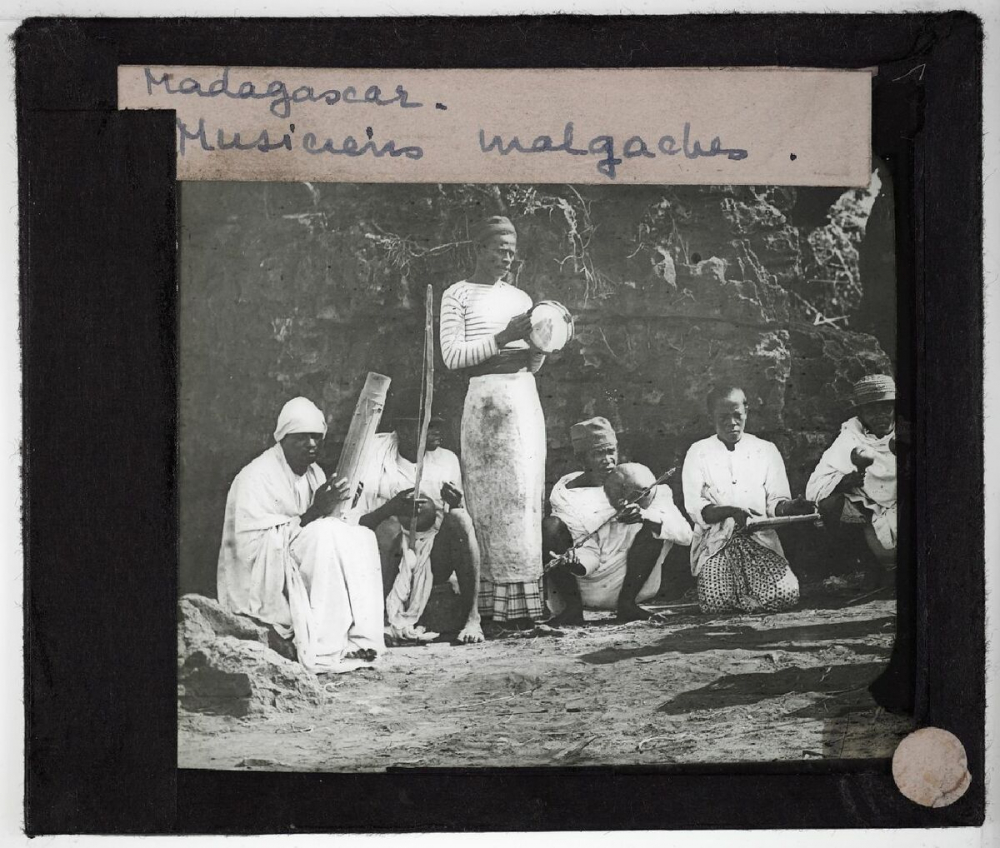 Madagascar.
Musiciens malgaches.